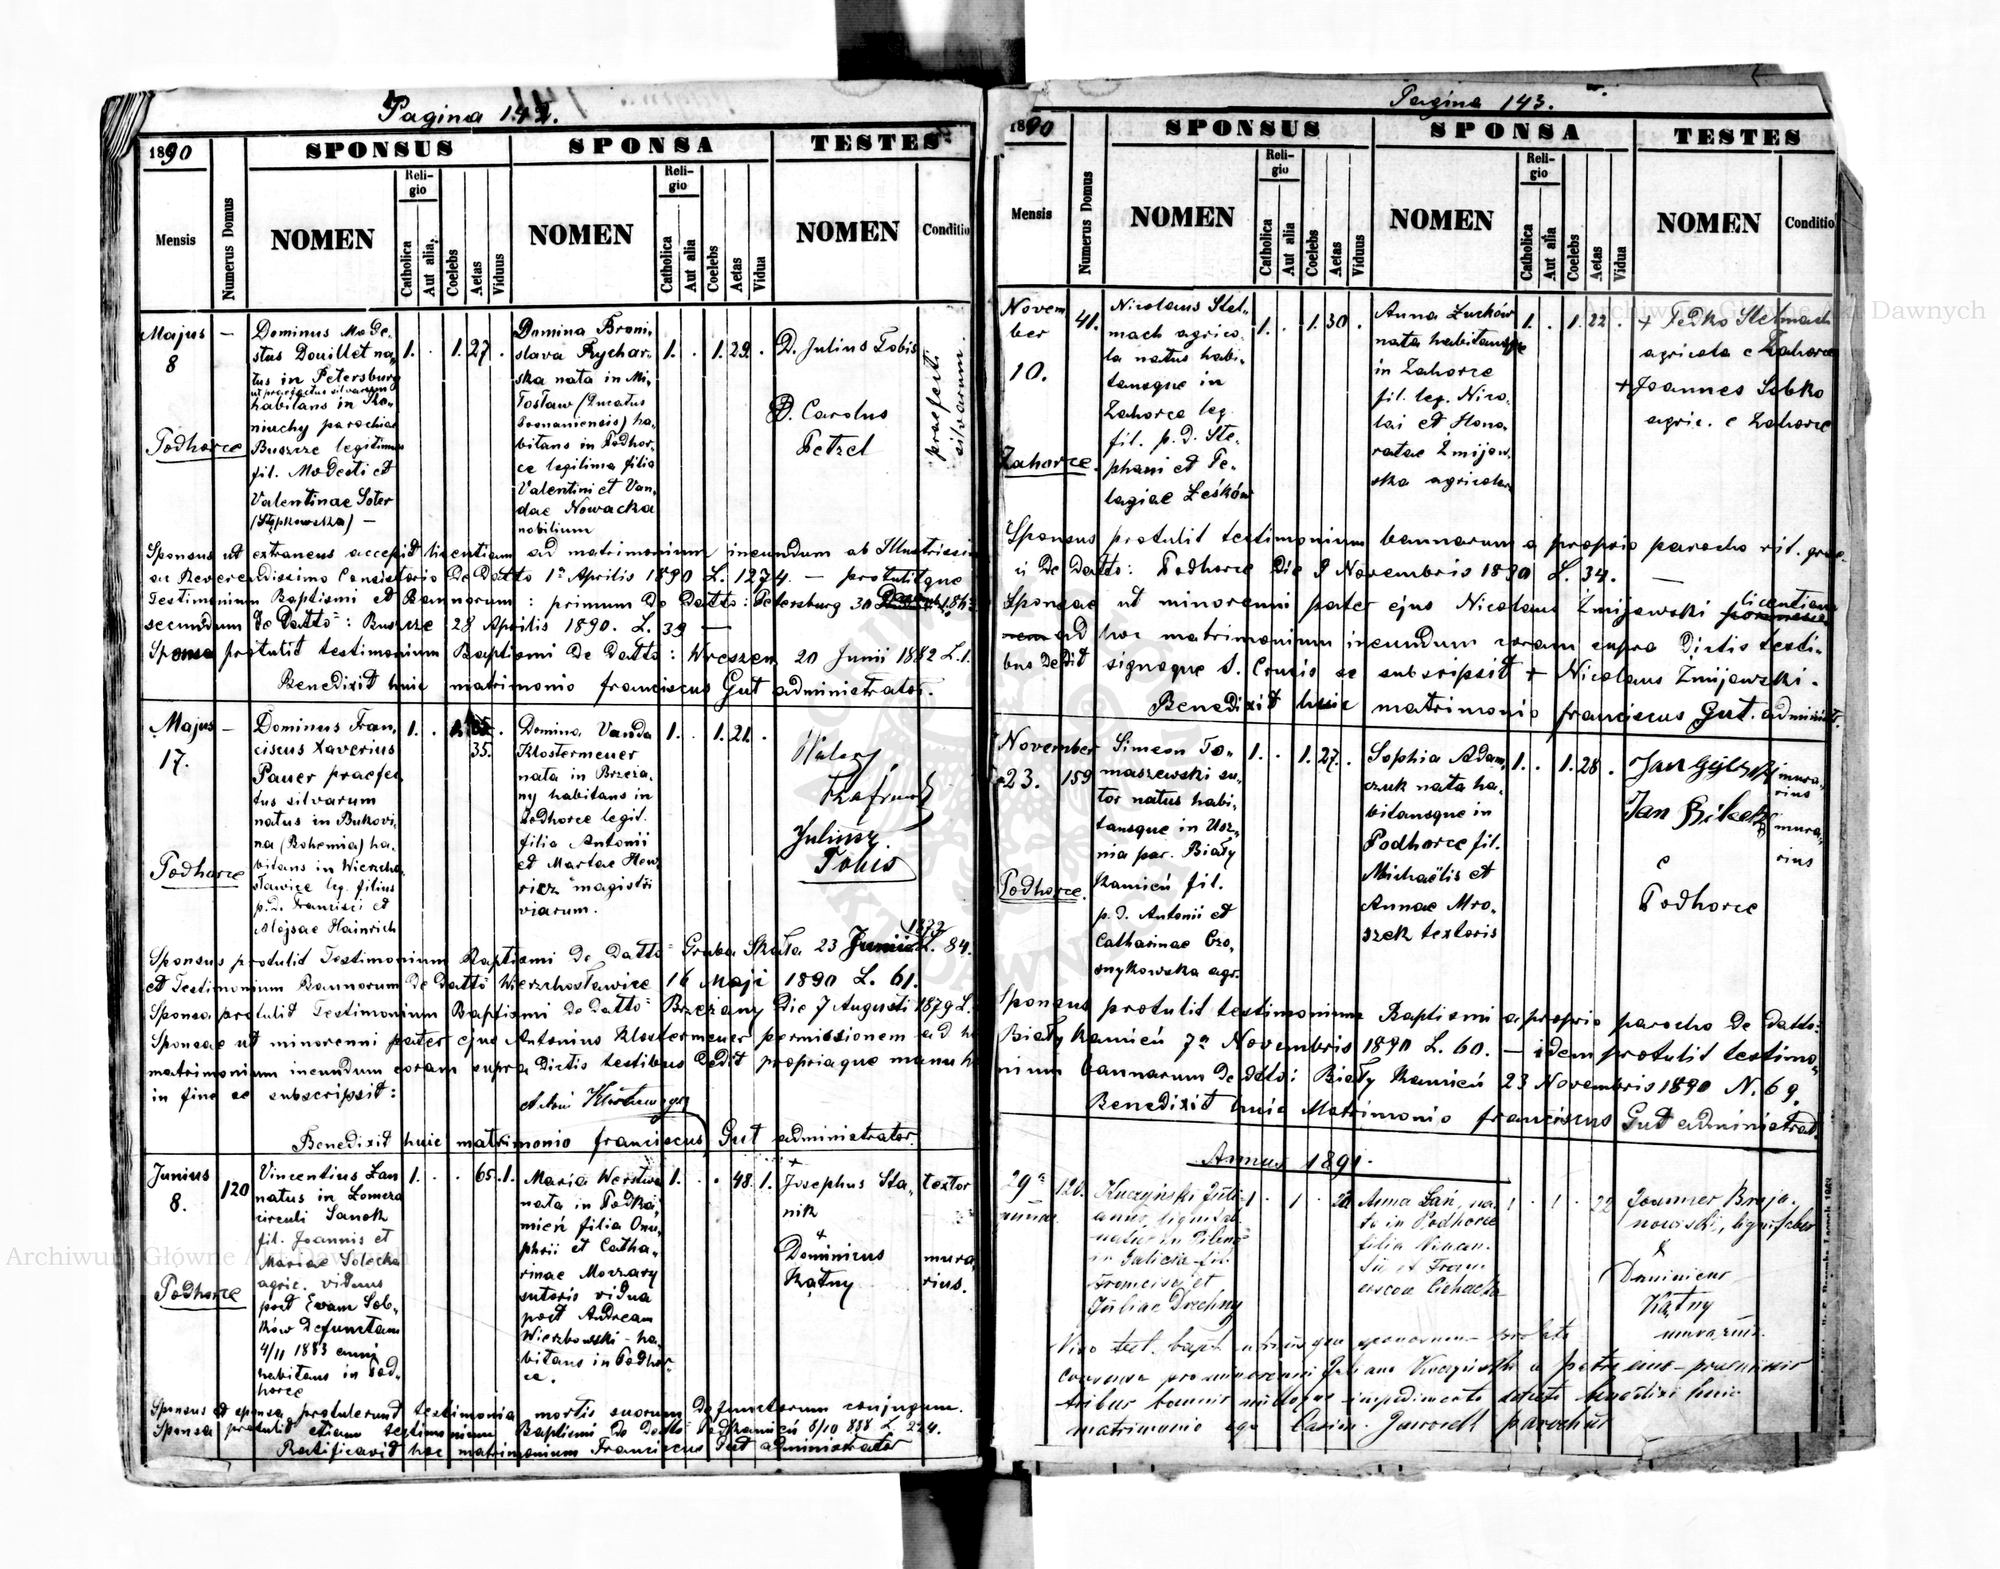 Pagina 142.
1890
SPONSUS
SPONSA
TESTES
Mensis
Numerus Domus
NOMEN
Religio
Catholica
Aut alia
Coelebs
Aetas
Viduus
NOMEN
Religio
Catholica
Aut alia
Coelebs
Aetas
Vidua
NOMEN
Conditio
Majus
8
Podhorce
—
Dominus Mode-
stus Douillet na-
tus in Petersburg
ut praefectus silvarum
habitans in Ko-
niuchy parochiae
Buszcze legitimus
fil. Modesti et
Valentinae Soter
(Stępkowska) —
1. . 1. 27 .
Domina Broni-
slava Rychar-
ska nata in Mi-
łosław (Ducatus
Posnaniensis) ha-
bitans in Podhor-
ce legitima filia
Valentini et Van-
dae Nowacka
nobilium
1. . 1. 29 .
D. Julius Tobis
D. Carolus
Petzel
praefecti
silvarum.
Sponsus ut extraneus accepit licentiam ad matrimonium ineundum ab Illustrissi-
mo Reverendissimo Consistorio de datto 1a Aprilis 1890 L. 1274. — protulitque
Testimonium Baptismi et Bannorum: primum de datto: Petersburg 30
secundum de datto: Buszcze 28 Aprilis 1890. L. 39 —
Sponsa protulit testimonium Baptismi de datto: Wreszen 20 Junii 1882 L. 1.
Benedixit huic matrimonio Franciscus Gut administrator.
Majus
17.
Podhorce
—
Dominus Fran-
ciscus Xaverius
Pauer praefec-
tus silvarum
natus in Bukovi-
na (Bohemia) ha-
bitans in Wierzcho-
sławice leg. filius
p.d. Francisci et
Alojsae Hainrich
1. . 35. .
Domina Vanda
Klostermeuer
nata in Brzeża-
ny habitans in
Podhorce legit.
filia Antonii
et Martae Hen-
ricz magistri
viarum.
1. . 1. 21 .
Juliusz
Tobis
Sponsus protulit Testimonium Baptismi de datto Gruba Skała 23 Junii 1873 L. 84.
et Testimonium Bannorum de datto Wierzchosławice 16 Maji 1890 L. 61.
Sponsa protulit Testimonium Baptismi de datto: Brzeżany die 7 Augusti 1879 L.
Sponsae ut minorenni pater ejus Antonius Klostermeuer permissionem ad h
matrimonium ineundum coram supra dictis testibus dedit propriaque manu h
in fine se subscripsit:
Antoni Klostermeyer
Benedixit huic matrimonio Franciscus Gut administrator.
Junius
8.
Podhorce
120
Vincentius Łan
natus in Lomera
circuli Sanok
fil. Joannis et
Mariae Solecka
agric. viduus
post Evam Sob-
ków defunctam
4/11 1883 anni
habitans in Pod-
horce
1. . . 65. 1.
Maria Werstwa
nata in Podka-
mień filia Onu-
phrii et Catha-
rinae Mowzary
sutoris vidua
post Andream
Wierzbowski ha-
bitans in Podhor-
ce.
1. . . 48. 1.
+
Josephus Sta-
nik
textor
+
Dominicus
Kątny
mura-
rius.
Sponsus et sponsa protulerunt testimonia mortis suorum defunctorum conjugum.
Sponsa protulit etiam testimonium Baptismi de datto Podkamień 8/10 888 L. 224.
Ratificavit hoc matrimonium Franciscus Gut administrator
Pagina 143.
1890
SPONSUS
SPONSA
TESTES
Mensis
Numerus Domus
NOMEN
Religio
Catholica
Aut alia
Coelebs
Aetas
Viduus
NOMEN
Religio
Catholica
Aut alia
Coelebs
Aetas
Vidua
NOMEN
Conditio
Novem-
ber
10.
Zahorce.
41.
Nicolaus Stel-
mach agrico-
la natus habi-
tansque in
Zahorce leg.
fil. p. d. Ste-
phani et Pe-
lagiae Leśków
1. . 1. 30 .
Anna Żuków
nata habitansque
in Zahorce
fil. leg. Nico-
lai et Hono-
ratae Żmijow-
ska agricolar.
1. . 1. 22 .
+ Fedko Stelmach
agricola e Zahorce
+ Joannes Sobko
agric. e Zahorce
Sponsus protulit testimonium bannorum a proprio parocho rit. grae-
ci de datto: Podhorce die 9 Novembris 1890 L. 34. —
Sponsae ut minorenni pater ejus Nicolaus Żmijowski licentiam
ad hoc matrimonium ineundum coram supra dictis testi-
bus dedit signoque S. Crucis se subscripsit + Nicolaus Zmijowski.
Benedixit huic matrimonio Franciscus Gut. administr.
November
23.
Podhorce.
159
Simeon To-
maszewski su-
tor natus habi-
tansque in Usz-
nia par. Biały
Kamień fil.
p. d. Antonii et
Catharinae Cro-
snykowska agr.
1. . 1. 27. .
Sophia Adam-
czuk nata ha-
bitansque in
Podhorce fil.
Michaëlis et
Annae Mro-
szek textoris
1. . 1. 28 .
mura-
rius
Jan
mura-
rius
e
Podhorce
Sponsus protulit testimonium Baptismi a proprio parocho de datto:
Biały Kamień 7a Novembris 1890 L. 60. — idem protulit testimo-
nium bannorum de datto: Biały Kamień 23 Novembris 1890 N. 69.
Benedixit huic Matrimonio Franciscus Gut administrat.
Annus 1891.
29a
120.
Kuczyński Juli-
anus,
natus in Pilzno
in Galicia fil.
Francisci et
Juliae Drechny
1 . 1 .
Anna Łań, na-
ta in Podhorce
filia Vincen-
tii et Fran-
ciscae Cichacka
1 . 1 . 22
Joannes Braja-
nowski, lignifaber
X
Dominicus
Kątny
murarius.
matrimonio ego Casim. Jaworek parochus
Archiwum Główne Akt Dawnych
Archiwum Główne Akt Dawnych